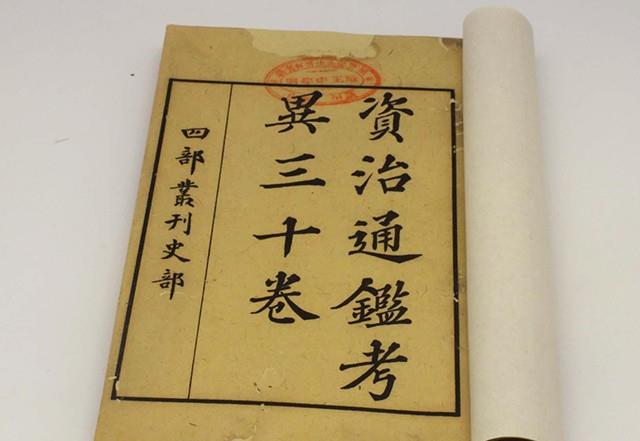 資治通鑑考
異三十卷
四部叢刊史部